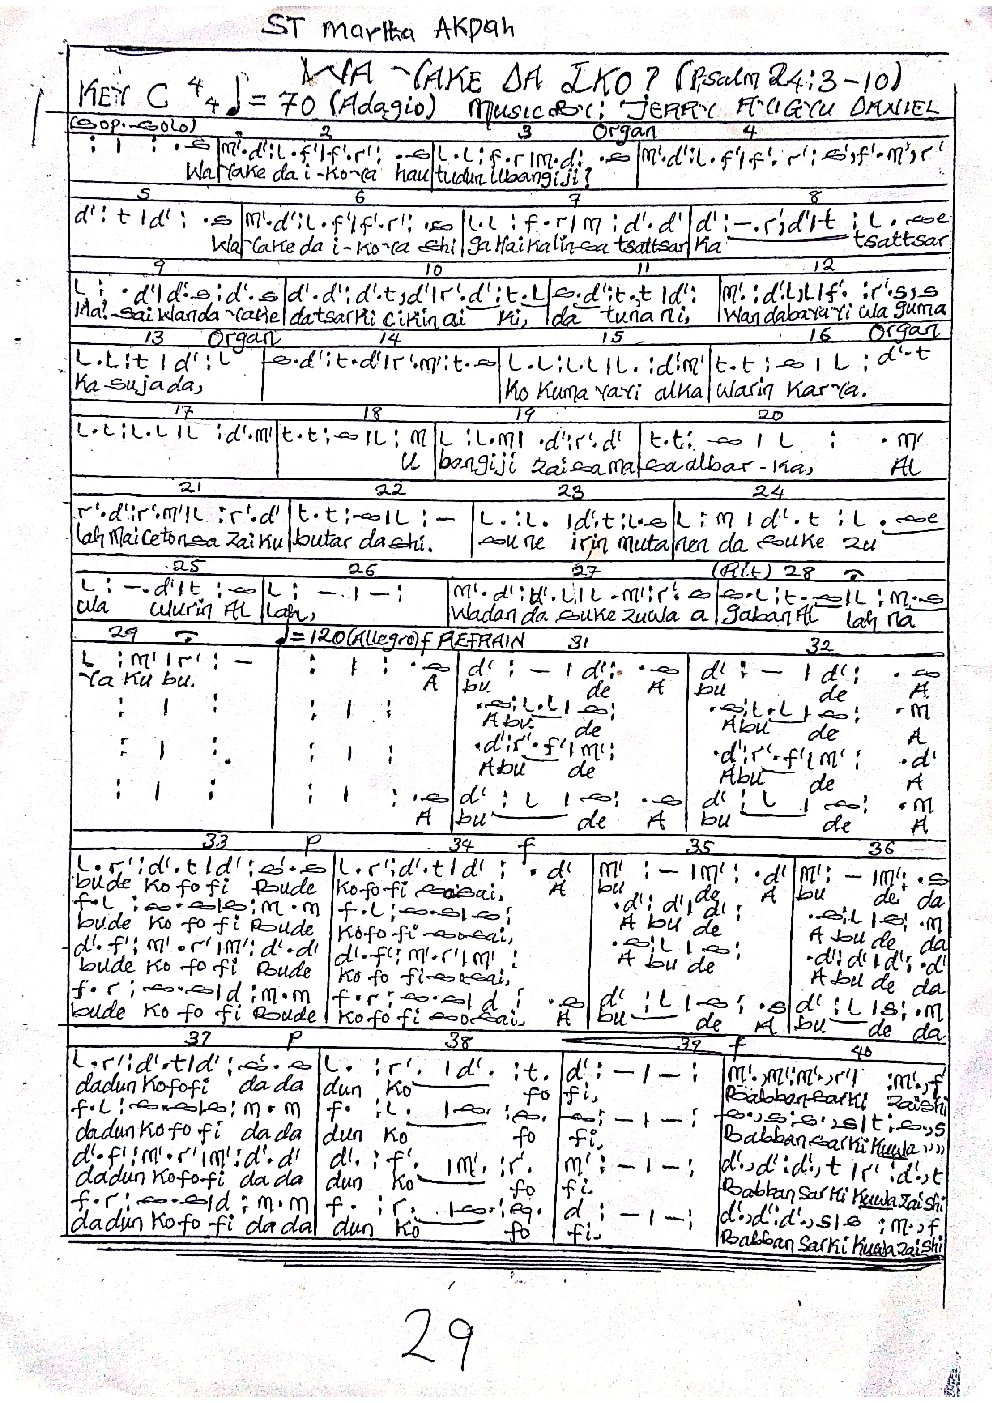 ST Martha Akpah
WA YAKE DA IKO? (Psalm 24:3-10)
KEY C 4/4 ♩= 70 (Adagio) MUSIC BY: JERRY DANIEL
(Sop. Solo) 2 3 Organ 4
: | : .s m'.d':l.f'|f'.r': .s l.l:f.r|m.d: .s m'.d':l.f'|f'.r':s',f'.m',r'
Wa yake da i-ko-ya hau tudun Ubangiji?
5 6 7 8
d':t|d': .s m'.d':l.f'|f'.r': .s l.l:f.r|m:d'.d' d':-.r'|d't:l. se
Wa yake da i-ko-ya shi ga Haikalin-sa tsattsar ka tsattsar
9 10 11 12
l: .d'|d'.s:d'.s d'.d':d'.t,d'|r'.d':t.l s.d':t.t|d': m'.:d'.l,l|f'. :r'.s,s
Mai-sai wanda yake da tsarki cikin ai ki, da tunani, Wanda baya yi wa guma
13 Organ 14 15 16 Organ
l.l:t|d':l s.d':t.d'|r'.m':t.s l.l:l.l|l. :d'.m' t.t:s|l:d'.t
ka sujada, Ko kuma yayi alka warin karya.
17 18 19 20
l.l:l.l|l :d'.m' t.t:s|l:m l:l.m|.d':r'.d' t.t: s|l : .m'
U bangiji zai sa ma sa albar-ka, Al
21 22 23 24
r'.d':r'.m'|l:r'.d' t.t:s|l:- l.:l. |d':t:l.s l:m|d'.t:l. se
lah Mai ceton sa zai ku butar da shi. Sune irin muta nen da suke zu
25 26 27 (Rit) 28
l:-.d'|t:s l:-|-: m'.d':d'.l|l.m':r'.s s.l:t.s|l:m.s
wa wurin Al lah, Wadan da suke zuwa a gaban Al lah na
29 ♩=120 (Allegro) f REFRAIN 31 32
l:m'|r':- : | : .s d':-|d': .s d':-|d': .s
Ya ku bu. A bu de A bu de A
: | : : | : .s:l.l|s: .s:l.l|s: .m
A bu de A bu de A
: | : : | : .d':r'.f'|m': .d':r'.f'|m': .d'
A bu de A bu de A
: | : : | : .s d':l|s: .s d':l|s: .m
A bu de A bu de A
33 p 34 f 35 36
l.r':d'.t|d':s.s l.r':d'.t|d': .d' m':-|m': .d' m':-|m': .s
bude ko fo fi Bude kofo fi sosai, A bu de A bu de da
f.l:s.s|s:m.m f.l:s.s|s: .d':d'|d': .s:l|s:.m
bude ko fo fi Bude kofo fi-sosai, A bu de A bu de da
d'.f':m'.r'|m':d'.d' d'.f':m'.r'|m': .s:l|s: .d':d'|d':.d'
bude ko fo fi Bude ko fo fi-sosai, A bu de A bu de da
f.r:s.s|d:m.m f.r:s.s|d : .s d':l|s: .s d':l|s:.m
bude ko fo fi Bude kofo fi sosai. A bu de A bu de da
37 p 38 39 f 40
l.r':d'.t|d':s.s l. :r'. |d'. :t. d':-|-: m'.,m':m'.,r'| :m'.,f'
dadun kofofi da da dun ko fo fi, Babban sarki zaishi
f.l:s.s|s:m.m f. :l. |s. :s. s:-|-: s.,s:s.,s|t:s.,s
dadun kofo fi da da dun ko fo fi, Babban sarki kuwa ,,,,
d'.f':m'.r'|m':d'.d' d'. :f'. |m'. :r'. m':-|-: d'.,d':d'.,t|r':d'.,t
dadun kofo fi da da dun ko fo fi. Babban Sarki Kuwa zaishi
f.r:s.s|d:m.m f. :r. |s. :s. d:-|-: d'.,d':d'.,s|s :m.,f
dadun kofo-fi da da dun ko fo fi, Babban Sarki Kuwa zaishi
29